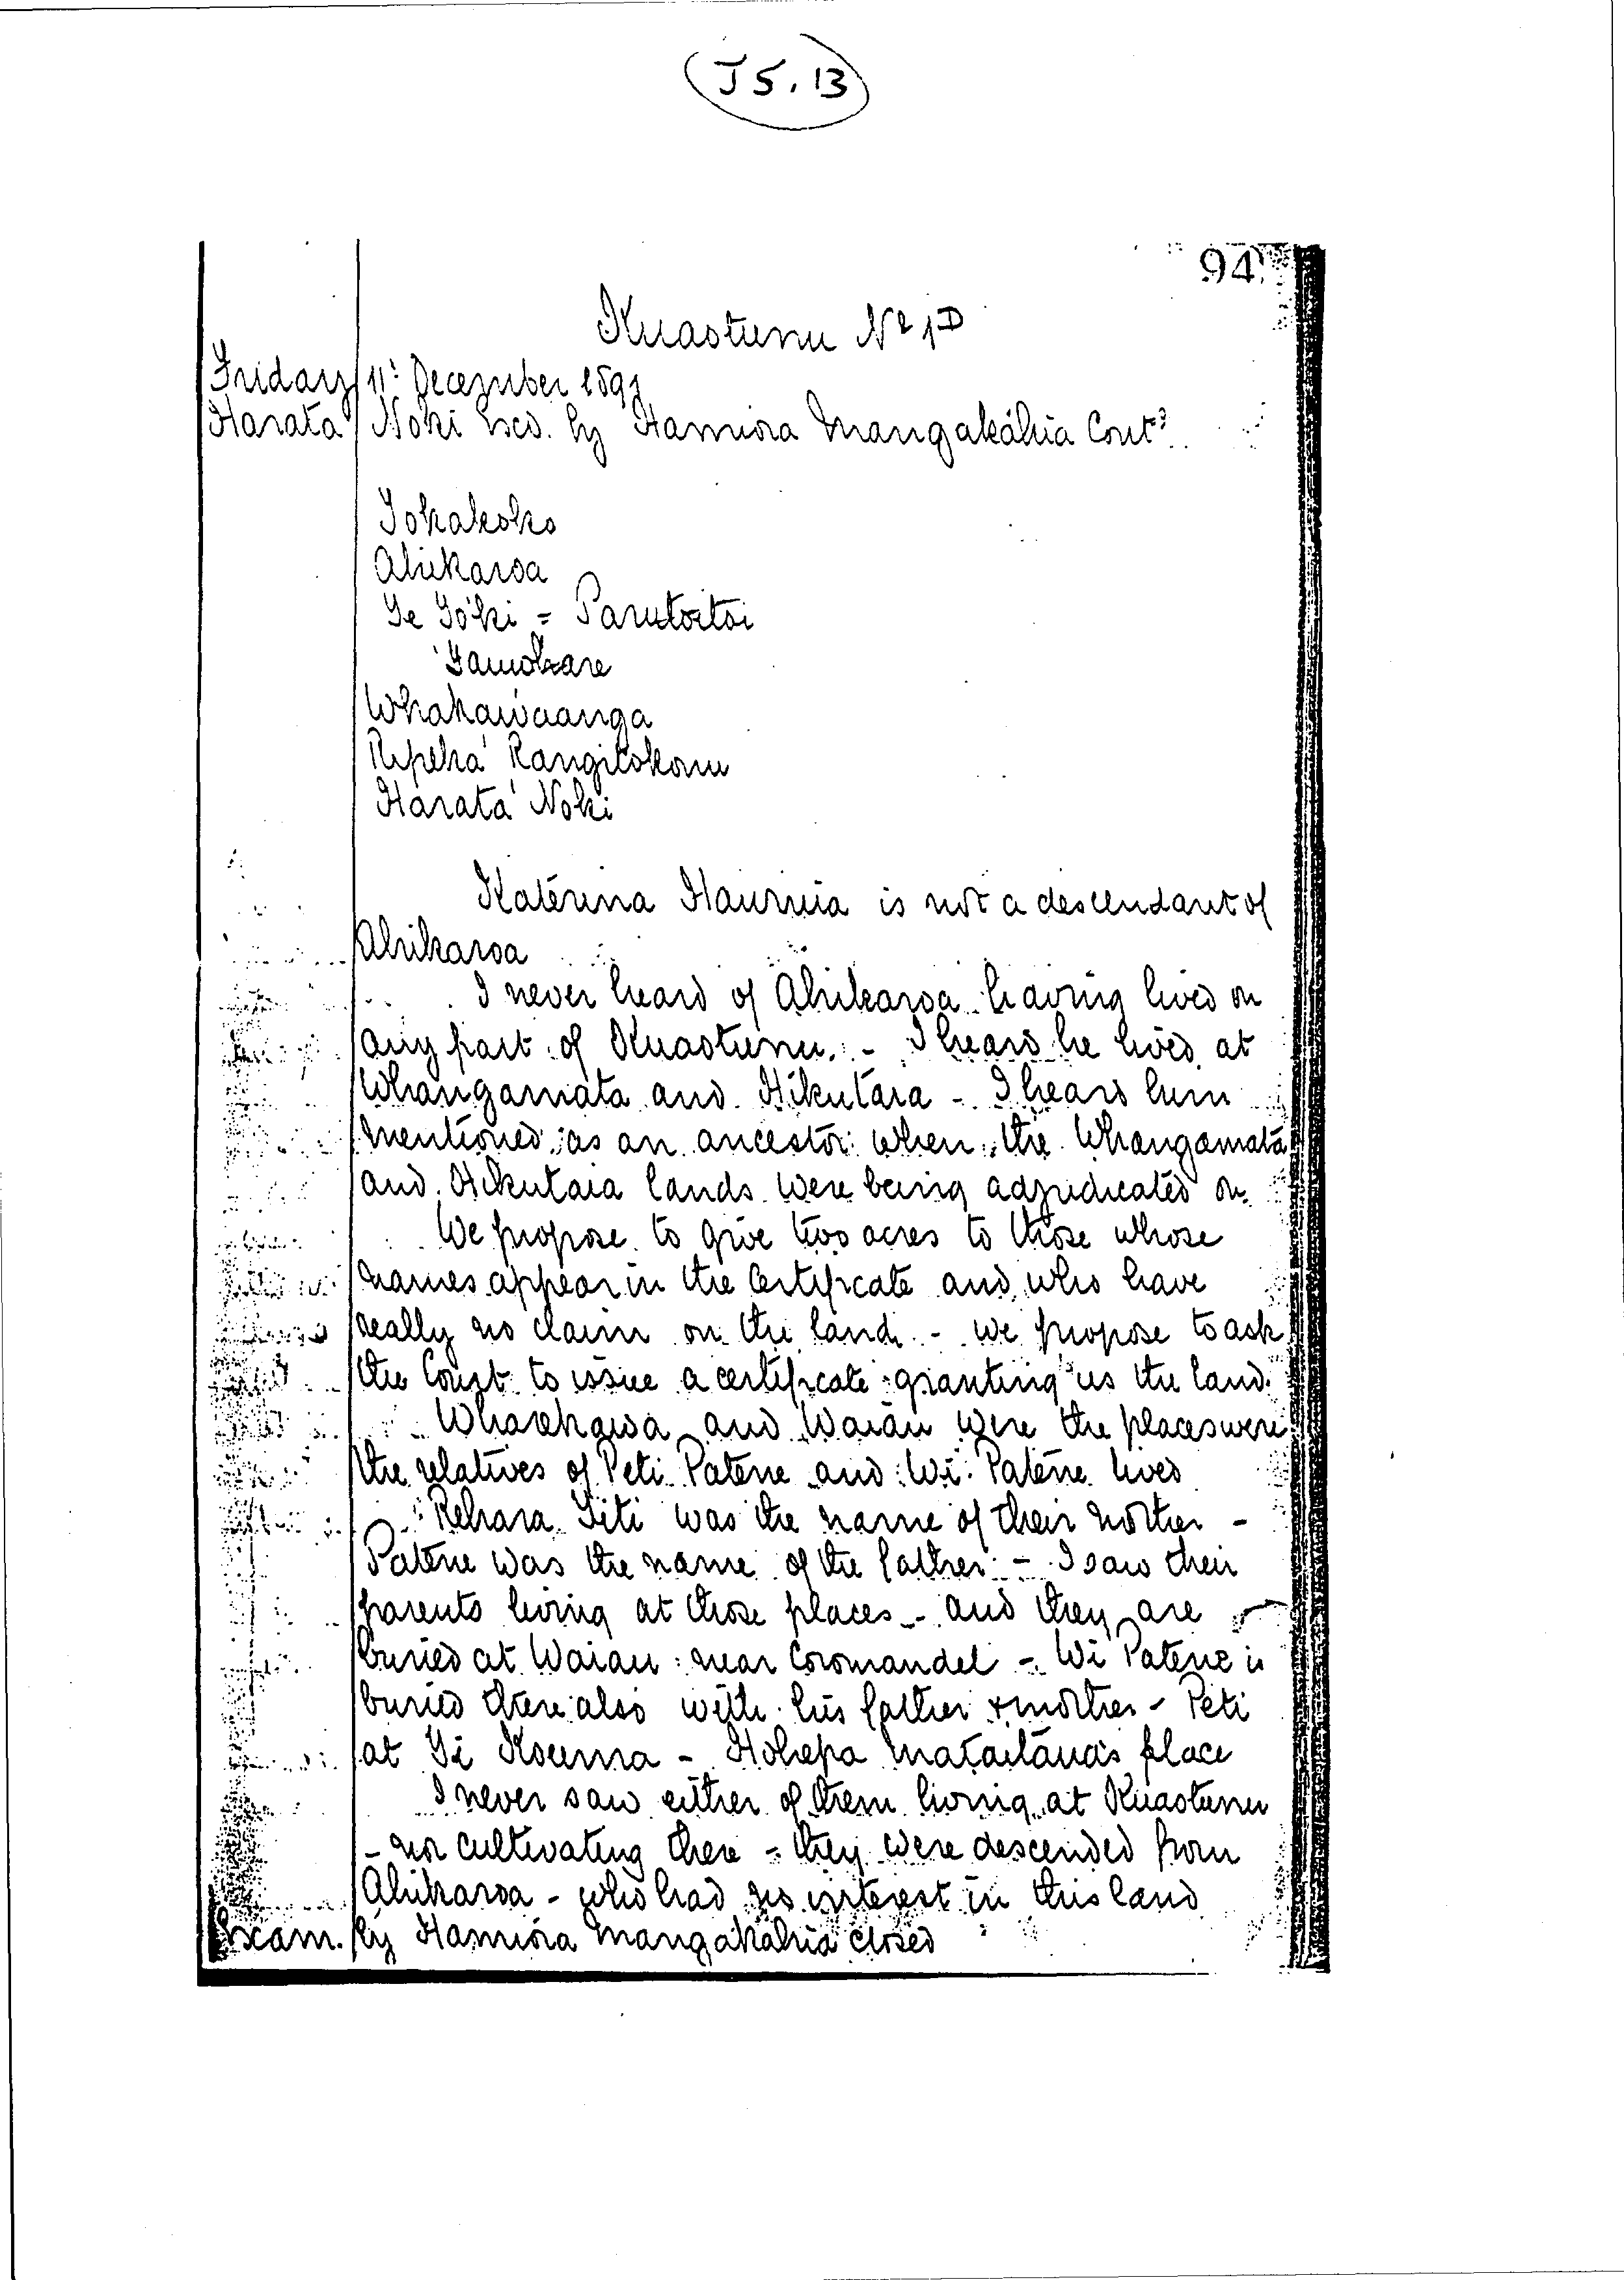 J5.13
94
Kuaotunu No 1D
Friday 11: December 1891
Harata Noki xed. by Hamiora Mangakahia Contd
Tokakoko
Ahikaroa
Te Toki = Parutoitoi
Tamokare
Whakawaanga
Ripeka Rangitokoru
Harata Noki
Katerina Hauruia is not a descendant of
Ahikaroa
I never heard of Ahikaroa having lived on
any part of Kuaotunu. - I heard he lived at
Whangamata and Hikutara - I heard him
mentioned as an ancestor when the Whangamata
and Hikutaia lands were being adjudicated on.
We propose to give two acres to those whose
names appear in the certificate and who have
really no claim on the land - we propose to ask
the Court to issue a certificate granting us the land.
and Waiau were the places were
the relatives of Peti Patene and Wi Patene lived
Rehara Titi was the name of their mother -
Patene was the name of the father - I saw their
parents living at those places - and they are
buried at Waiau near Coromandel - Wi Patene is
buried there also with his father & mother - Peti
at Ti Kouma - Hohepa Mataitaua's place
I never saw either of them living at Kuaotunu
- nor cultivating there - they were descended from
Ahikaroa - who had no interest in this land
Exam. by Hamiora Mangakahia closed